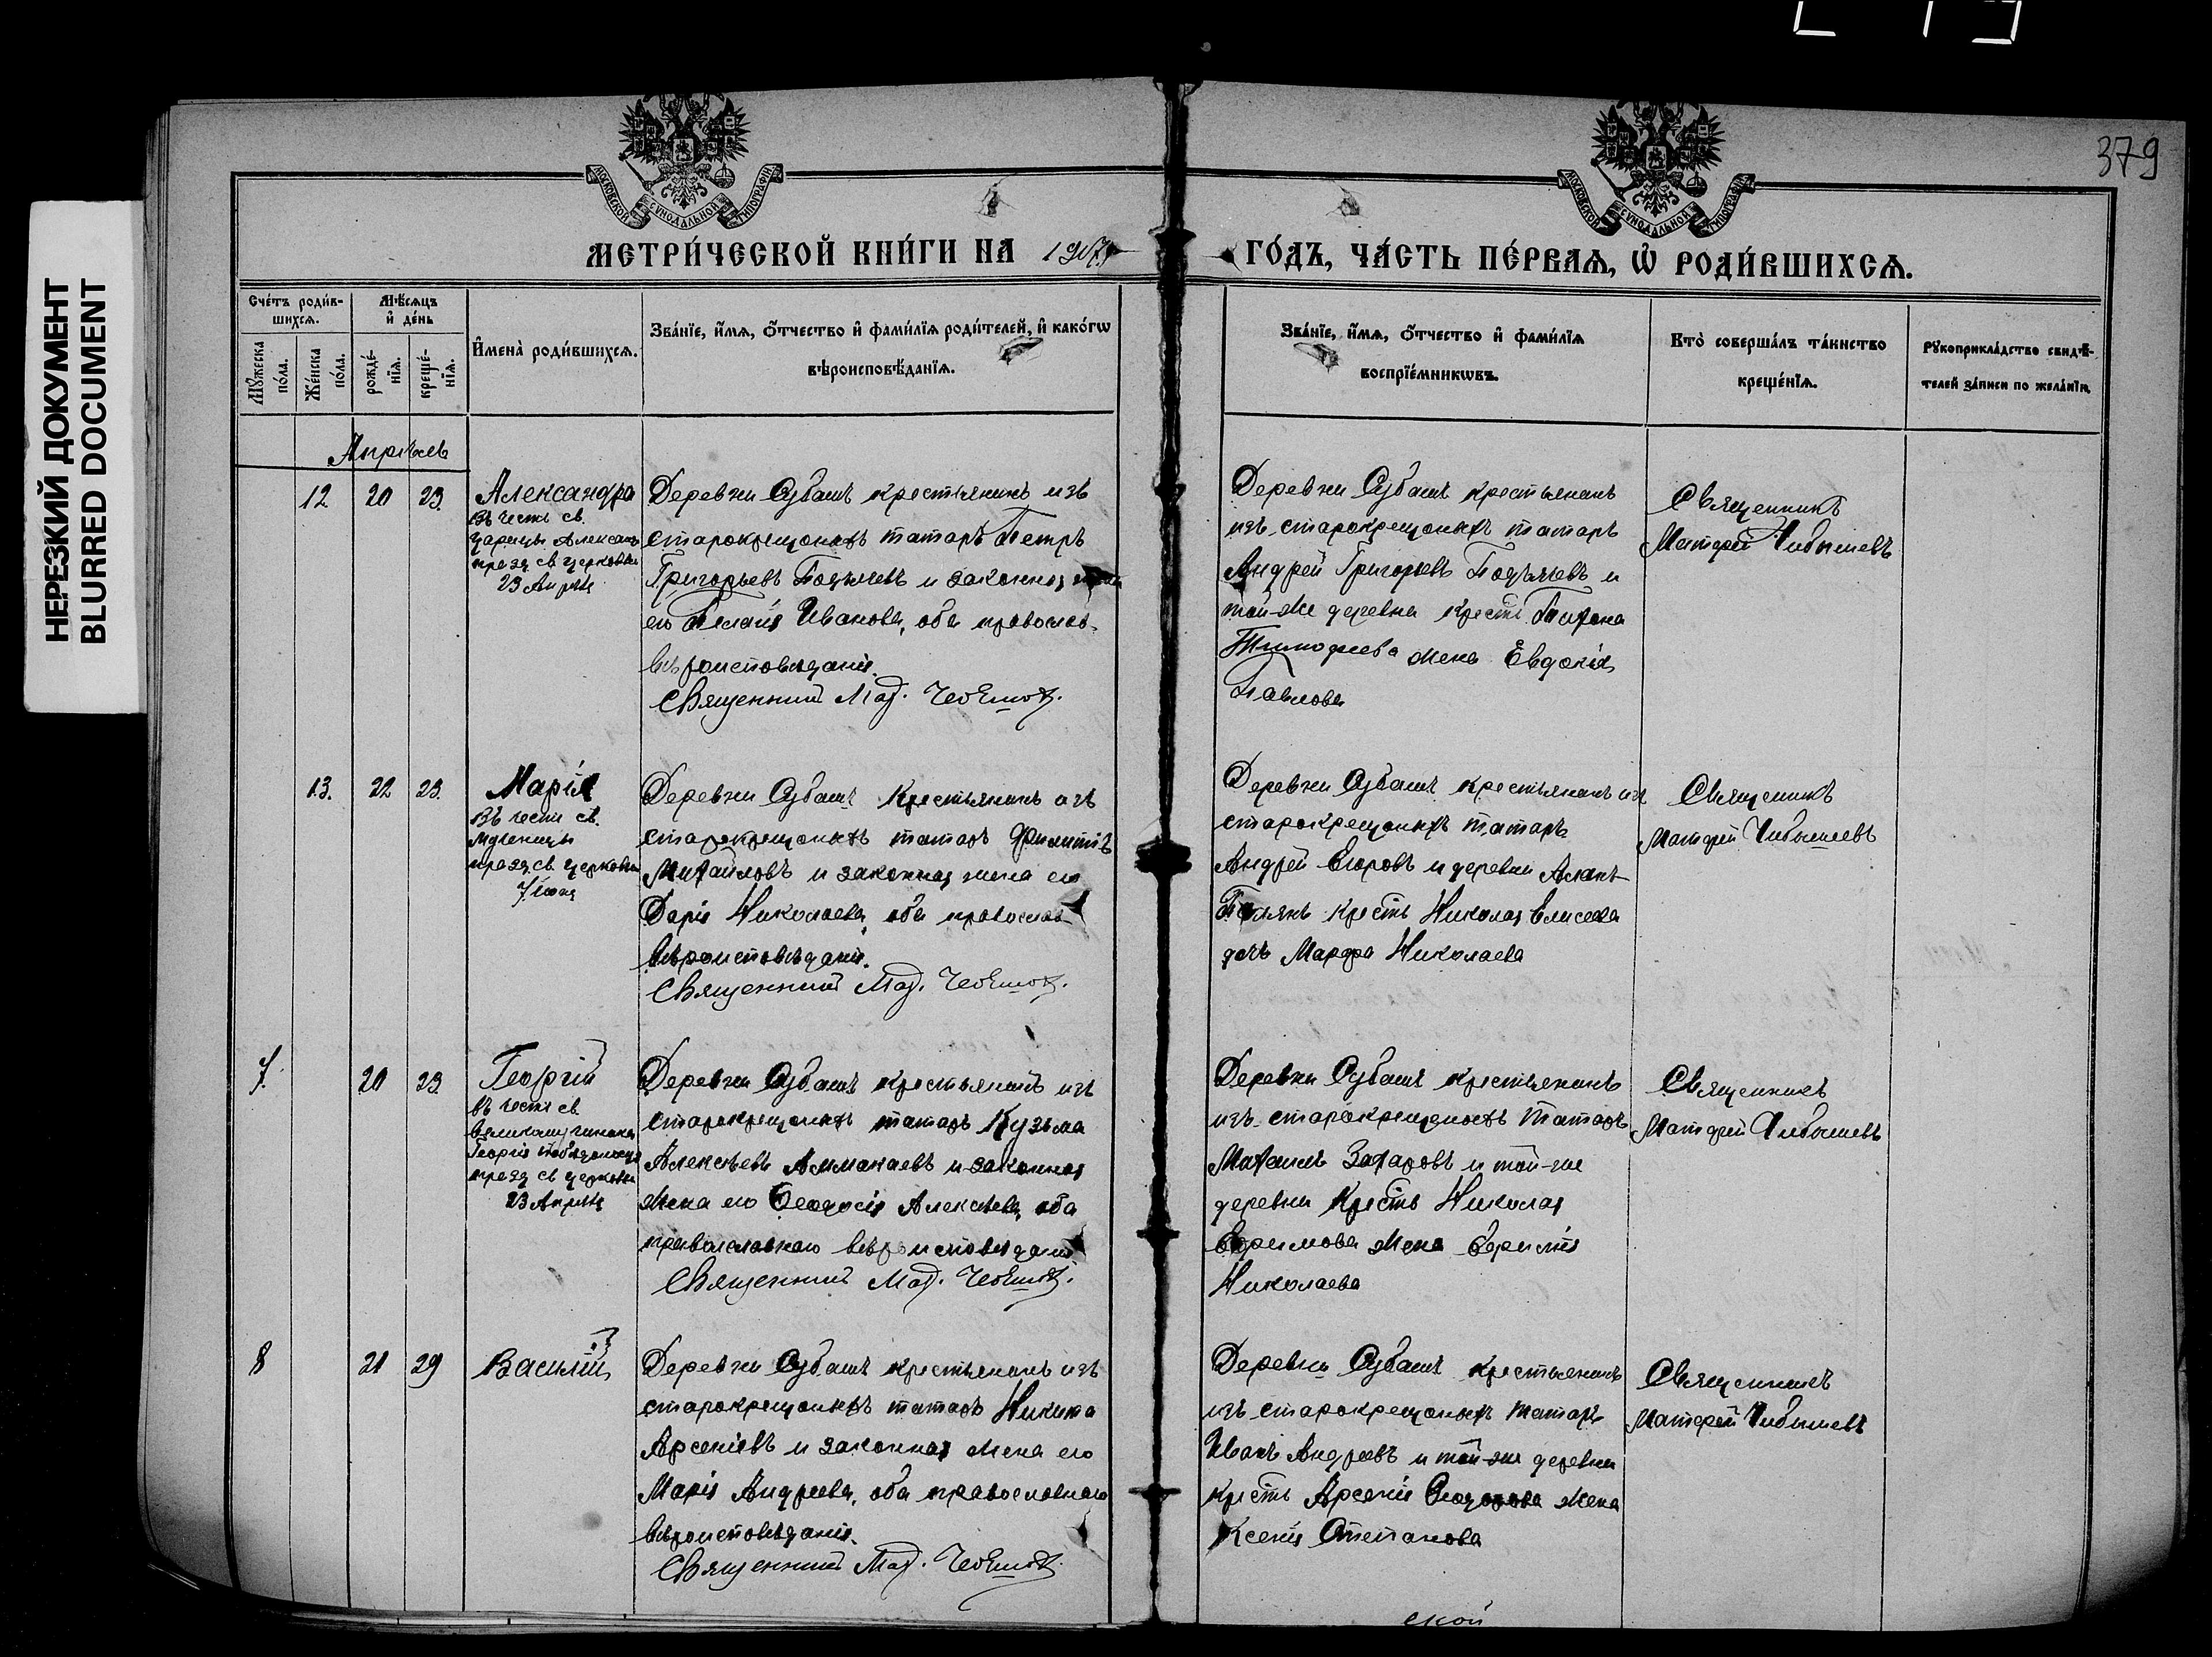 НЕРЕЗКИЙ ДОКУМЕНТ
BLURRED DOCUMENT
379
МОСКОВСКОЙ СѴНОДАЛЬНОЙ ТИПОГРАФІИ
МОСКОВСКОЙ СѴНОДАЛЬНОЙ ТИПОГРАФІИ
МЕТРИ́ЧЕСКОЙ КНИ́ГИ НА 1907
ГО́ДЪ, ЧА́СТЬ ПЕ́РВАѦ, Ѡ РОДИ́ВШИХСѦ.
Сче́тъ роди́в-
шихсѧ.
Мѣ́сѧцъ
и҆ де́нь
Мꙋ́жеска
по́ла.
Же́нска
по́ла.
рожде́-
нїѧ.
креще́-
нїѧ.
И҆мена̀ роди́вшихсѧ.
Зва́нїе, и҆́мѧ, ѻ҆́тчество и҆ фами́лїѧ роди́телей, и҆ како́гѡ
вѣроисповѣ́данїѧ.
Зва́нїе, и҆́мѧ, ѻ҆́тчество и҆ фами́лїѧ
воспрїе́мникѡвъ.
Кто̀ соверша́лъ та́инство
креще́нїѧ.
Рꙋкоприкла́дство свидѣ́-
телей за́писи по жела́нїю.
Апрѣль
12 20 23.
Александра
въ честь св.
царицы Александ
празд св. церковью
23 Апрѣля
Деревни Субашъ крестьянинъ изъ
старокрещоныхъ татаръ Петръ
Григорьевъ и законная жена
его Иванова, оба православ
вѣроисповѣданія.
Священникъ Мат.
Деревни Субашъ крестьянинъ
изъ старокрещоныхъ татаръ
Андрей Григорьевъ и
той-же деревни крест
Тимофеева жена Евдокія
Павлова
Священникъ
Матфей Чибышевъ
13. 22 23.
Марія
въ честь св.
мученицы
празд св. церковью
7 Іюня
Деревни Субашъ крестьянинъ изъ
старокрещоныхъ татаръ Филиппъ
Михайловъ и законная жена его
Дарія Николаева, оба православ
вѣроисповѣданія.
Священникъ Мат.
Деревни Субашъ крестьянинъ изъ
старокрещоныхъ татаръ
Андрей Егоровъ и деревни
крест Николая Елисеева
дочь Марфа Николаева
Священникъ
Матфей Чибышевъ
7. 20 23.
Георгій
въ честь св.
великомученика
Георгія Побѣдоносца
празд св церковью
23 Апрѣля
Деревни Субашъ крестьянинъ изъ
старокрещоныхъ татаръ Кузьма
Алексѣевъ и законная
жена его Феодосія Алексѣева, оба
православнаго вѣроисповѣданія
Священникъ Мат.
Деревни Субашъ крестьянинъ
изъ старокрещоныхъ татаръ
Михаилъ Захаровъ и той-же
деревни крест Николая
Ефримова жена
Николаева
Священникъ
Матфей Чибышевъ
8 21 29
Василій
Деревни Субашъ крестьянинъ изъ
старокрещоныхъ татаръ Никита
Арсеніевъ и законная жена его
Марія Андреева, оба православнаго
вѣроисповѣданія.
Священникъ Мат.
Деревни Субашъ крестьянинъ
изъ старокрещоныхъ татаръ
Иванъ Андреевъ и той-же деревни
крест Арсенія Феодорова жена
Ксенія Степанова
Священникъ
Матфей Чибышевъ
ской